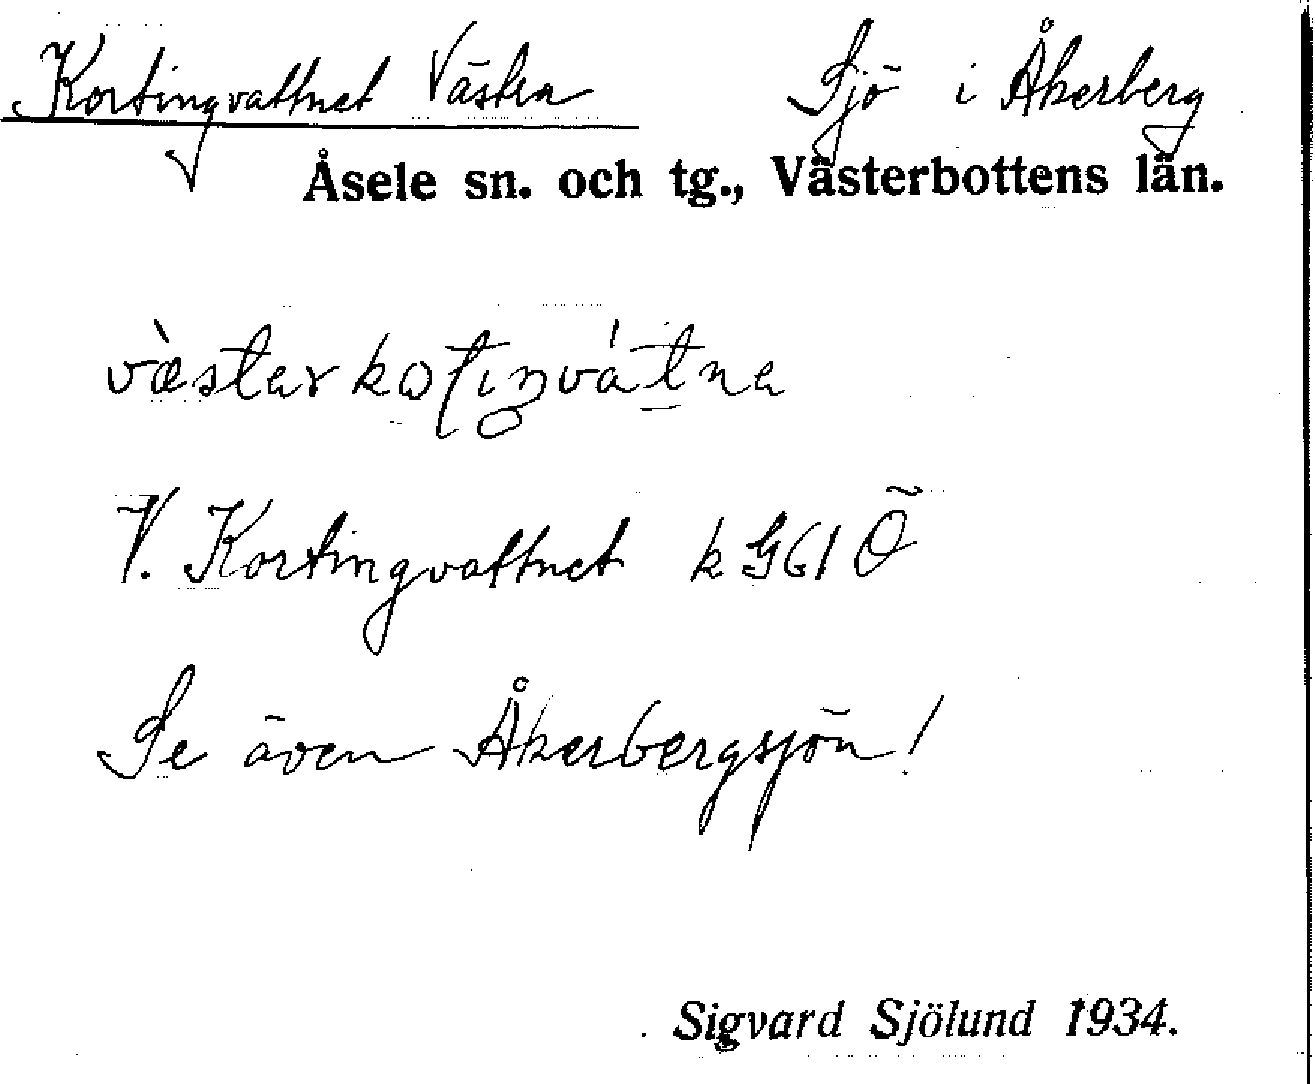 Kortingvattnet Västra Sjö i Åkerberg
Åsele sn. och tg., Västerbottens län.
V. Kortingvattnet k G61 Ö
Se även Åkerbergsjön!
Sigvard Sjölund 1934.